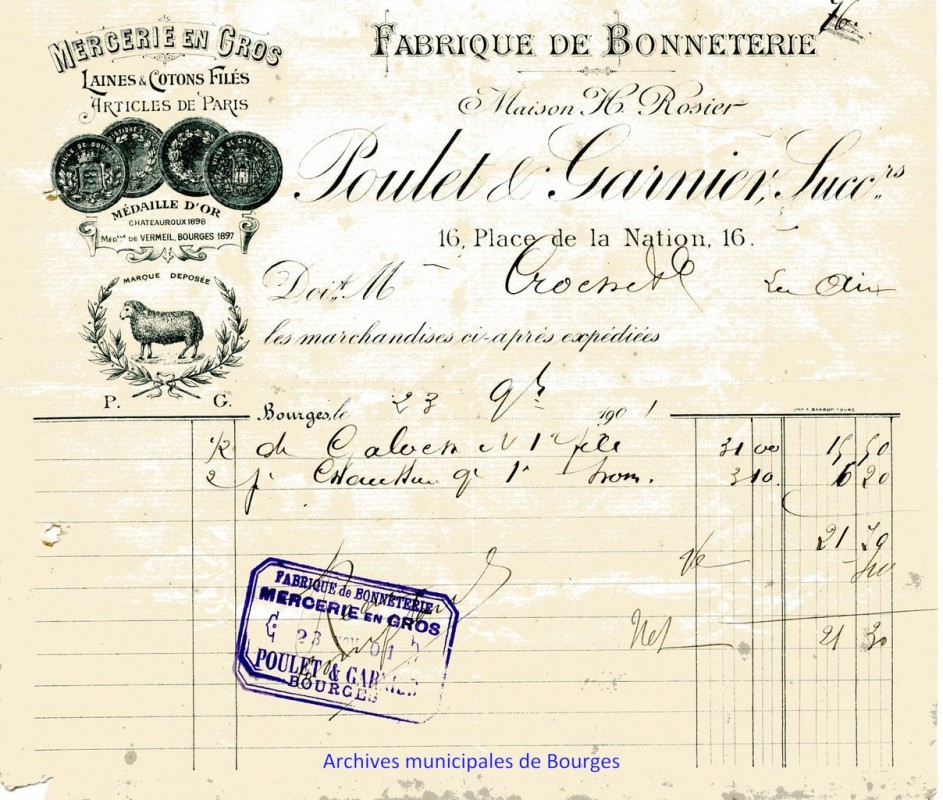 MERCERIE EN GROS
LAINES & COTONS FILÉS
ARTICLES DE PARIS
VILLE DE BOURGES
VILLE DE CHATEAUROUX
MÉDAILLE D'OR
CHATEAUROUX 1898
MÉDlle DE VERMEIL, BOURGES 1897
MARQUE DEPOSÉE
P. G.
FABRIQUE DE BONNETERIE
Maison H. Rosier
Poulet & Garnier, Succrs
16, Place de la Nation, 16.
Doit M
les marchandises ci-après expédiées
Bourges, le 23 9b 1901
1/2 de 31 00 15 50
2 3 10 6 20
21 70
Net 21 30
FABRIQUE de BONNETERIE
MERCERIE EN GROS
23 NOV 01
POULET & GARNIER
BOURGES
Archives municipales de Bourges